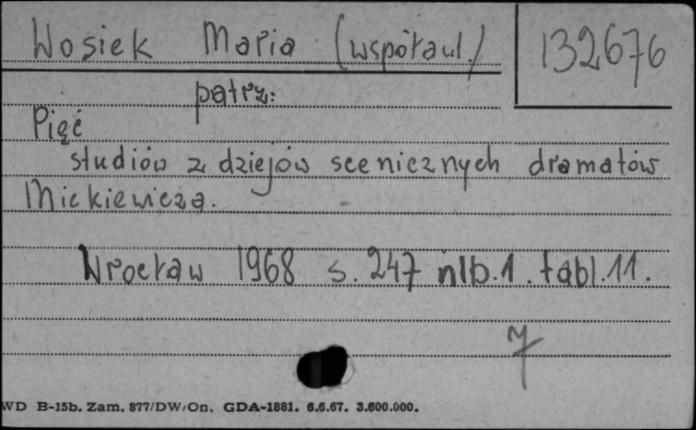 Wosiek Maria (współaut.) 132676
patrz:
Pięć
studiów z dziejów scenicznych dramatów
Mickiewicza.
Wrocław 1968 s. 247 nlb. 1. tabl. 11.
7
WD B-15b. Zam. 877/DW/On. GDA-1881. 6.6.67. 3.600.000.